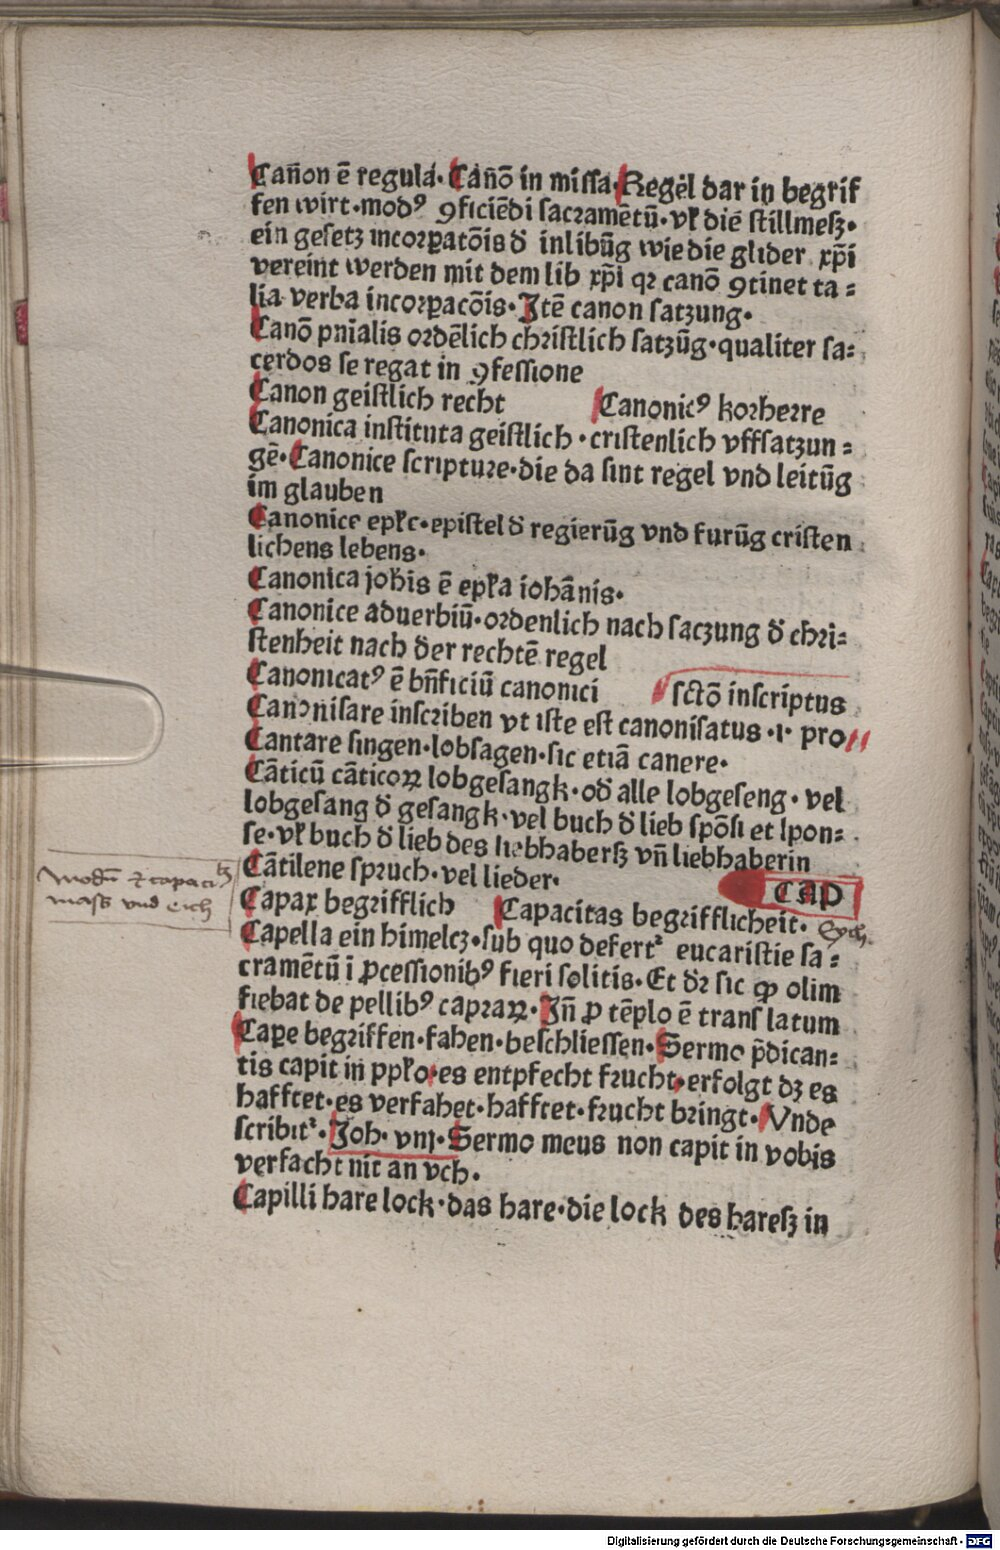 Cañon ē regula. Cañō in missa. Regel dar in begrif
fen wirt. modꝰ ꝯficiēdi sacramētū. vł die stillmesz.
ein gesetz incorꝑatōis đ inlibūg wie die glider xp̄i
vereint werden mit dem lib xp̄i qꝛ canō ꝯtinet ta=
lia verba incorꝑacōis. Jtē canon satzung.
Canō pnialis ordēlich christlich satzūg. qualiter sa=
cerdos se regat in ꝯfessione
Canon geistlich recht Canonicꝰ korherre
Canonica instituta geistlich. cristenlich vffsatzun=
gē. Canonice scripture. die da sint regel vnd leitūg
im glauben
Canonice epłe. epistel đ regierūg vnd furūg cristen
lichens lebens.
Canonica joħis ē epła iohānis.
Canonice aduerbiū. ordenlich nach saczung đ chri=
stenheit nach der rechtē regel
Canonicatꝰ ē bñficiū canonici sctō inscriptus
Canonisare inscriben vt iste est canonisatus .i. pro
Cantare singen. lobsagen. sic etiā canere.
Cāticū cāticoꝝ lobgesangk. ođ alle lobgeseng. vel
lobgesang đ gesangk. vel buch đ lieb spōsi et spon=
se. vł buch đ lieb des liebhabersz vñ liebhaberin
Cātilene spruch. vel lieder.
CAP
Capax begrifflich Capacitas begrifflicheit.
Capella ein himelcz. sub quo defertᷣ eucaristie sa=
cramētū i ꝓcessionibꝰ fieri solitis. Et dꝛ sic ꝙ olim
fiebat de pellibꝰ capraꝝ. Jñ ꝓ tēplo ē translatum
Cape begriffen. fahen. beschliessen. Sermo p̄dican=
tis capit in ppło. es entpfecht frucht. erfolgt dz es
hafftet. es verfahet. hafftet. frucht bringt. Vnde
scribitᷣ. Joh. viij. Sermo meus non capit in vobis
verfacht nit an vch.
Capilli hare lock. das hare. die lock des haresz in
mass vnd eich
Digitalisierung gefördert durch die Deutsche Forschungsgemeinschaft - DFG